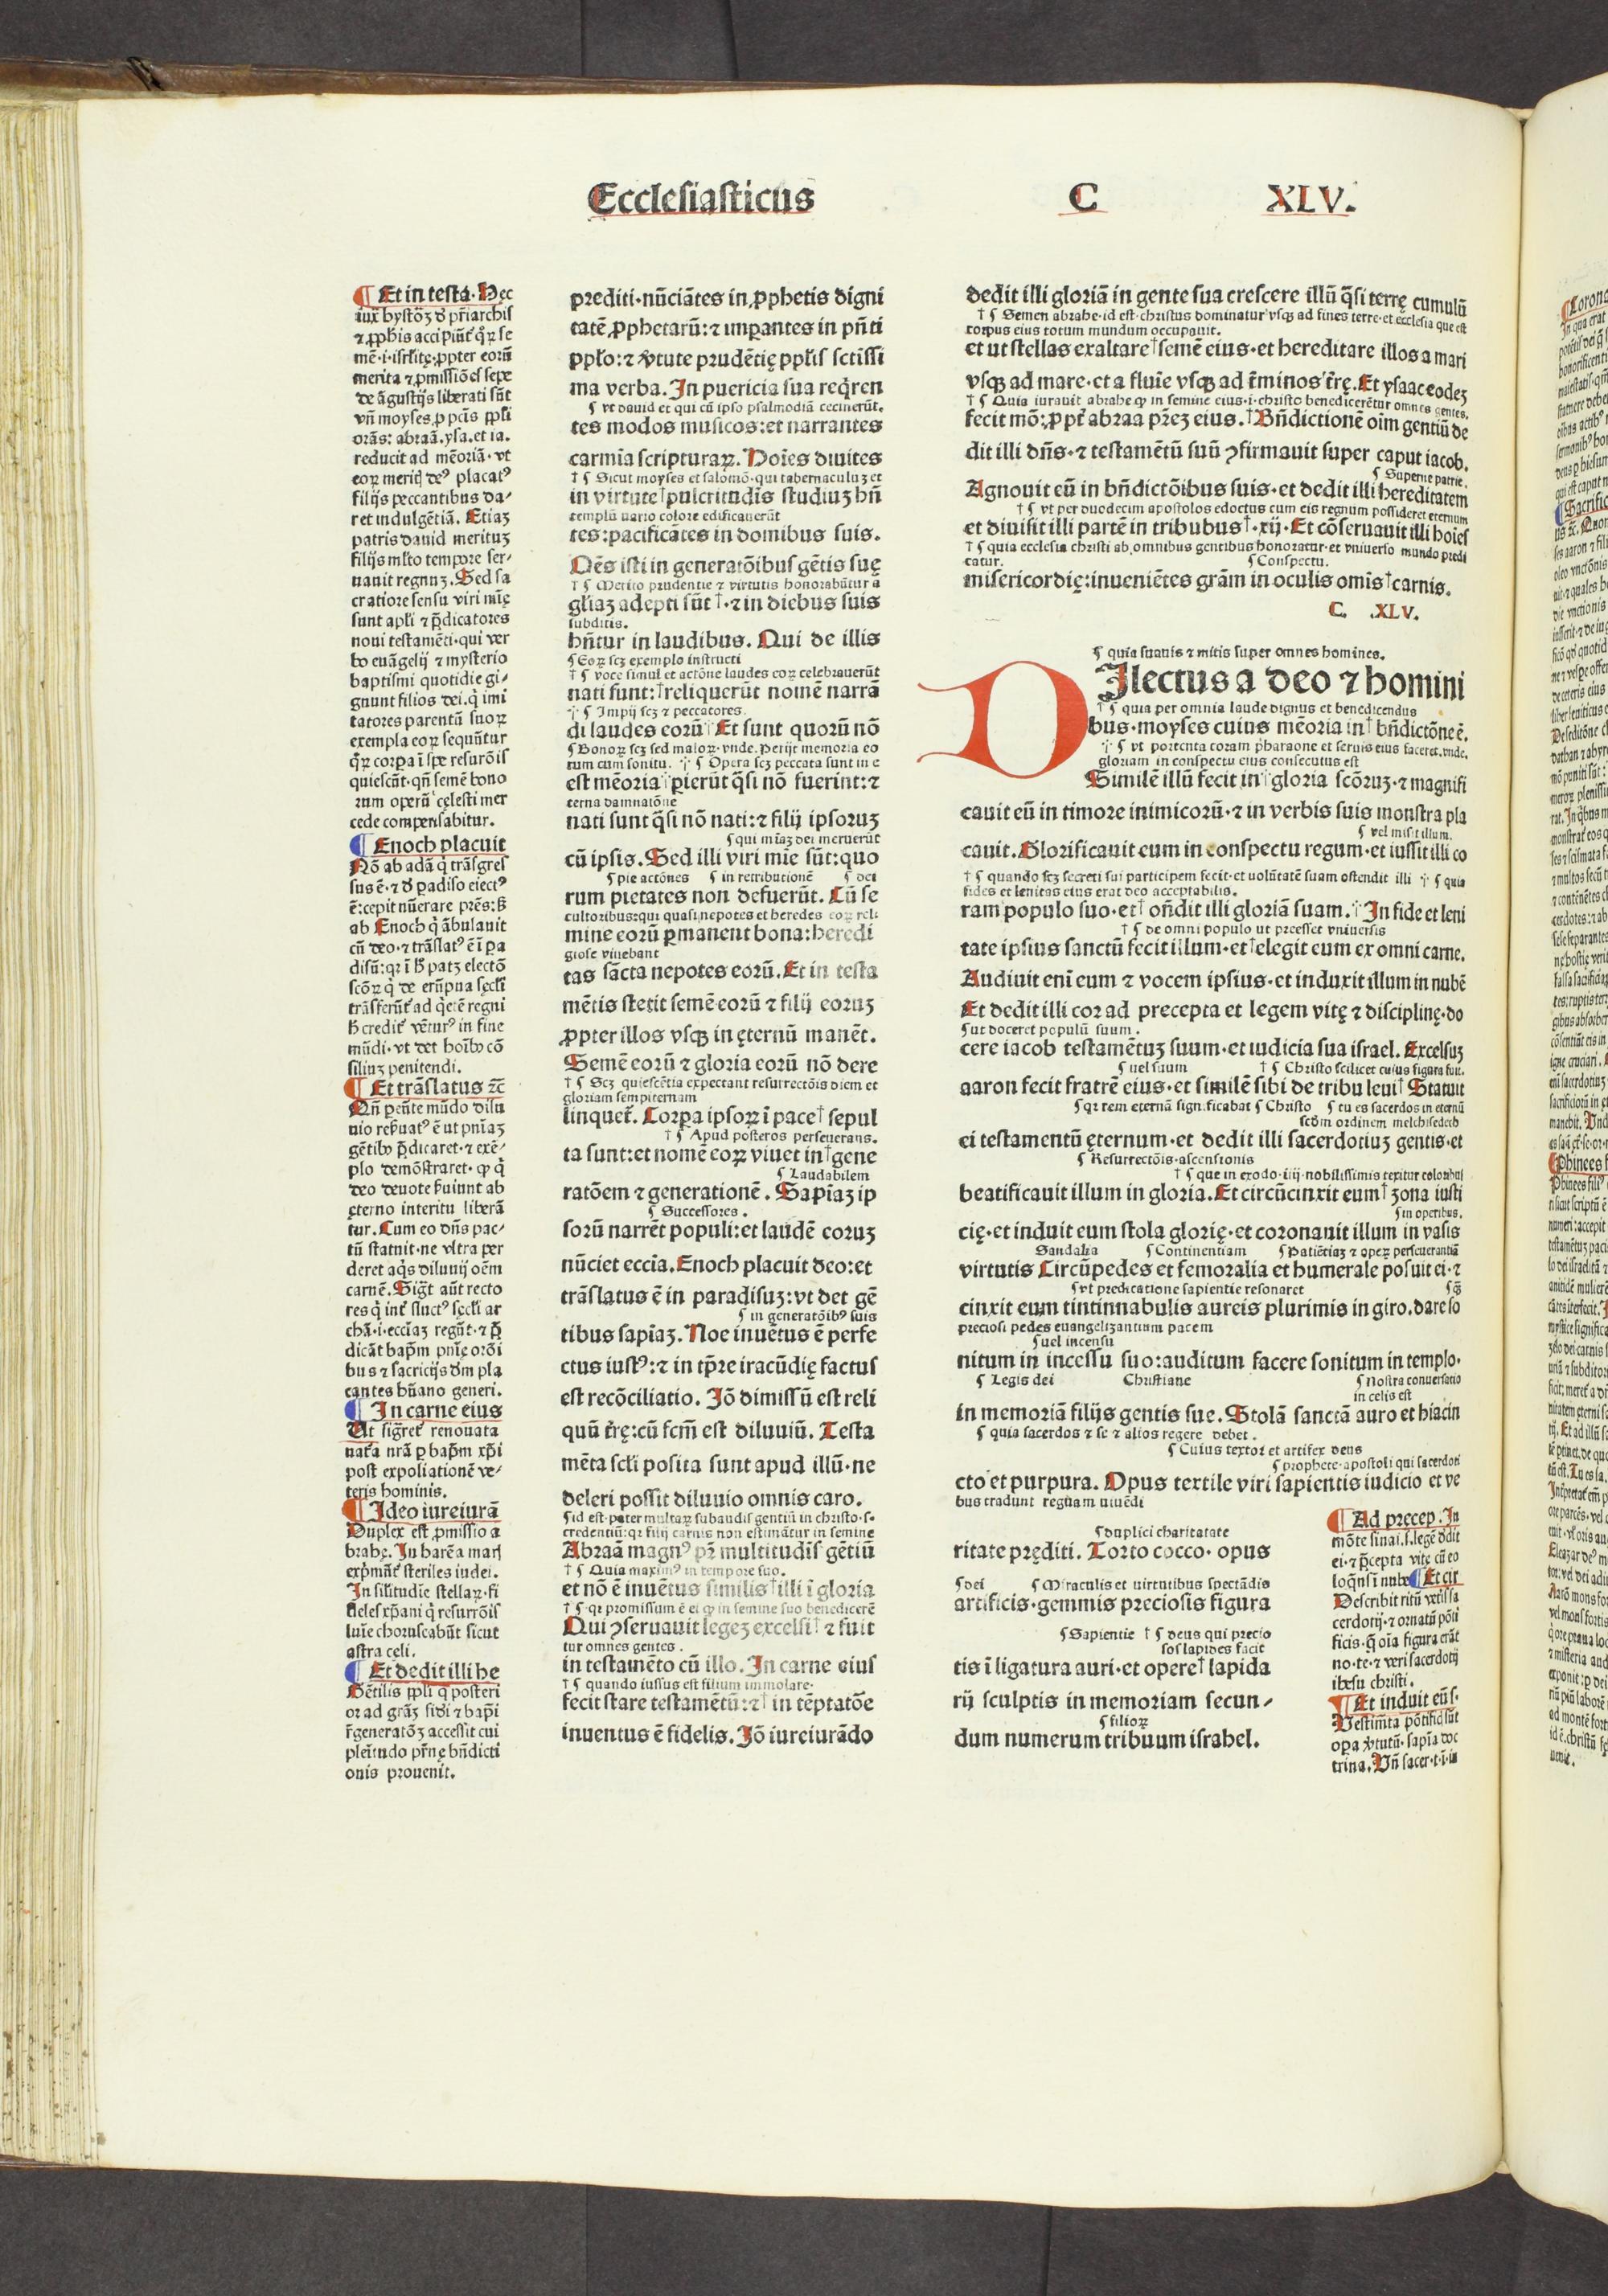 Ecclesiasticus C XLV.
¶ Et in testā. Hec
iux̄ hystoꝫ ꝺ pr̄iarchis
⁊ ꝓphis accipiūt̄ qꝛ se
mē·i·isrl̄itę ꝓpter eoꝝ
merita ⁊ ꝓmissiōes sepe
de āgustijs liberati sūt
vn̄ moyses ꝓ pc̄is ppl̄i
orās: abraā.ysa.et ia.
reducit ad mēoriā·vt
eoꝝ merit̄ deꝰ placatꝰ
filijs peccantibus da-
ret indulgētiā. Etiaꝫ
patris dauid merituꝫ
filijs ml̄to tempore ser-
uauit regnuꝫ. Sed sa
cratiore sensu viri mīe
sunt apl̄i ⁊ p̄dicatores
noui testamēti·qui ver
bo euāgelij ⁊ mysterio
baptismi quotidie gi-
gnunt filios dei.q̄ imi
tatores parentū suoꝝ
exempla eoꝝ sequūtur
qꝝ corpa ī spe resurōis
quiescūt·qn̄ semē bono
rum operū celesti mer
cede compensabitur.
¶ Enoch placuit
Nō ab adā q̄ trāsgres
sus ē·⁊ ꝺ padiso eiectꝰ
ē: cepit nūerare prēs: s̄
ab Enoch q̄ ābulauit
cū deo·⁊ trāslatꝰ ē ī pa
disū: qꝛ ī h̄ patꝫ electō
scōꝝ q̄ de erūpna sęcl̄i
trāsferūt̄ ad q̄etē regni
h̄ credit̄ vētūrꝰ in fine
mūdi·vt det hoībꝰ cō
siliuꝫ penitendi.
¶ Et trāslatus ⁊c̄
Qn̄ peūte mūdo dilu
uio reẜuatꝰ ē ut pn̄iaꝫ
gētibꝰ p̄dicaret·⁊ exē-
plo demōstraret·ꝙ q̄
deo deuote ẜuiunt ab
ęterno interitu liberā
tur. Cum eo dn̄s pac-
tū statuit·ne vltra per
deret aqs diluuij oēm
carnē. Sigt̄ aūt recto
res q̄ int̄ fluctꝰ sęcl̄i ar
chā·i·eccīaꝫ regūt·⁊ p̄
dicāt bapm̄ pn̄ię orōi
bus ⁊ sacricijs dm̄ pla
cantes hūano generi.
¶ In carne eius
Ut sigr̄et̄ renouata
nat̄a nr̄a ꝑ bapm̄ xp̄i
post expoliationē ve-
teris hominis.
¶ Ideo iureiurā
Duplex est ꝓmissio a
brahę. In harēa maris
exp̄mūt̄ steriles iudei.
In sil̄itudīe stellaꝝ·fi
deles xp̄ani q̄ resurrōis
luīe choruscabūt sicut
astra celi.
¶ Et dedit illi he
Gētilis ppl̄i q̄ posteri
or ad grāꝫ fidei ⁊ bapi
r̄generatōꝫ accessit cui
plenitudo pr̄nę bn̄dicti
onis prouenit.
prediti·nūciātes in ꝓphetis digni
tatē ꝓphetarū: ⁊ imꝑantes in pn̄ti
pplo: ⁊ v̄tute prudētię ppl̄is sctissi
ma verba. In puericia sua reqren
¶ vt dauid et qui cū ipso psalmodiā cecinerūt.
tes modos musicos: et narrantes
carmīa scripturaꝝ. Hoīes diuites
† ¶ Sicut moyses et salomō·qui tabernaculuꝫ et
in virtute† pulcritudīs studiuꝫ hn̄
templū uario colore edificauerūt
tes: pacificātes in domibus suis.
Oēs isti in generatōibus gētis suę
† ¶ Merito prudentie ⁊ virtutis honorabūtur a
gl̄iaꝫ adepti sūt†·⁊ in diebus suis
subditis.
hn̄tur in laudibus. Qui de illis
¶ Eoꝝ scꝫ exemplo instructi
† ¶ voce simul et actōne laudes eoꝝ celebrauerūt
nati sunt: † reliquerūt nomē narrā
¶ Impij scꝫ ⁊ peccatores.
di laudes eorū Et sunt quorū nō
¶ Bonoꝝ scꝫ sed maloꝝ·vnde. Perijt memoria eo
rum cum sonitu. ¶ Opera scꝫ peccata sunt in e
est mēoria pierūt q̄si nō fuerint: ⁊
terna damnatōne
nati sunt q̄si nō nati: ⁊ filij ipsoruꝫ
¶ qui mīaꝫ dei meruerūt
cū ipsis. Sed illi viri mīe sūt: quo
¶ pie actōnes ¶ in retributionē ¶ dei
rum pietates non defuerūt. Cū se
cultoribus: qui quasi nepotes et heredes eoꝝ reli
mine eorū ꝑmanent bona: heredi
giose viuebant
tas sācta nepotes eorū. Et in testa
mētis stetit semē eorū ⁊ filij eoruꝫ
ꝓpter illos vsqꝫ in ęternū manēt.
Semē eorū ⁊ gloria eorū nō dere
† ¶ Scꝫ quiescētia expectant resurrectōis diem et
gloriam sempiternam
linquet̄. Corpa ipsoꝝ ī pace† sepul
† ¶ Apud posteros perseuerans.
ta sunt: et nomē eoꝝ viuet in† gene
¶ Laudabilem
ratōem ⁊ generationē. Sapīaꝫ ip
¶ Successores.
sorū narrēt populi: et laudē eoruꝫ
nūciet eccīa. Enoch placuit deo: et
trāslatus ē in paradisuꝫ: vt det gē
¶ in generatōibꝰ suis
tibus sapīaꝫ. Noe inuētus ē perfe
ctus iustꝰ: ⁊ in tp̄re iracūdię factus
est recōciliatio. Iō dimissū est reli
quū t̄rę: cū fcm̄ est diluuiū. Testa
mēta scl̄i posita sunt apud illū·ne
deleri possit diluuio omnis caro.
¶ id est·pater multaꝝ subaudis gentiū in christo·s·
credentiū: qꝛ filij carnis non estimātur in semine
Abraā magnꝰ pr̄ multitudīs gētiū
† ¶ Quia maximꝰ in tempore suo.
et nō ē inuētus similis† illi ī gloria
† ¶ qꝛ promissum ē ei ꝙ in semine suo benedicerē
Qui ꝯseruauit legeꝫ excelsi† ⁊ fuit
tur omnes gentes.
in testamēto cū illo. In carne eius
† ¶ quando iussus est filium immolare.
fecit stare testamētū: ⁊† in tēptatōe
inuentus ē fidelis. Iō iureiurādo
dedit illi gloriā in gente sua crescere illū q̄si terrę cumulū
† ¶ Semen abrahe·id est·christus dominatur vsqꝫ ad fines terre·et ecclesia que est
corpus eius totum mundum occupauit.
et ut stellas exaltare† semē eius·et hereditare illos a mari
vsqꝫ ad mare·et a fluīe vsqꝫ ad t̄minos t̄rę. Et ysaac eodeꝫ
† ¶ Quia iurauit abrahe ꝙ in semine eius·i·christo benedicerētur omnes gentes.
fecit mō: ꝓpt̄ abraa prēꝫ eius. † Bn̄dictionē oīm gentiū de
dit illi dn̄s·⁊ testamētū suū ꝯfirmauit super caput iacob.
¶ Superne patrie.
Agnouit eū in bn̄dictōibus suis·et dedit illi hereditatem
† ¶ vt per duodecim apostolos edoctus cum eis regnum possideret eternum
et diuisit illi partē in tribubus†·xij·Et cōseruauit illi hoīes
† ¶ quia ecclesia christi ab omnibus gentibus honoratur·et vniuerso mundo predi
catur. ¶ Conspectu.
misericordię: inueniētes grām in oculis omīs† carnis.
C. .XLV.
¶ quia suauis ⁊ mitis super omnes homines.
DIlectus a deo ⁊ homini
† ¶ quia per omnia laude dignus et benedicendus
bus·moyses cuius mēoria in† bn̄dictōne ē.
¶ vt portenta coram pharaone et seruis eius faceret.vnde.
gloriam in conspectu eius consecutus est
Similē illū fecit in gloria scōruꝫ·⁊ magnifi
cauit eū in timore inimicorū·⁊ in verbis suis monstra pla
¶ vel misit illum.
cauit. Glorificauit eum in conspectu regum·et iussit illi co
† ¶ quando scꝫ secreti sui participem fecit·et uolūtatē suam ostendit illi ¶ quia
fides et lenitas eius erat deo acceptabilis.
ram populo suo·et† on̄dit illi gloriā suam. In fide et leni
† ¶ de omni populo ut preesset vniuersis
tate ipsius sanctū fecit illum·et† elegit eum ex omni carne.
Audiuit enī eum ⁊ vocem ipsius·et induxit illum in nubē
Et dedit illi cor ad precepta et legem vitę ⁊ disciplinę·do
¶ ut doceret populū suum.
cere iacob testamētuꝫ suum·et iudicia sua israel. Excelsuꝫ
¶ uel suum † ¶ Christo scilicet cuius figura fuit.
aaron fecit fratrē eius·et similē sibi de tribu leui† Statuit
¶ qꝛ rem eternā significabat ¶ Christo ¶ tu es sacerdos in eternū
scdm ordinem melchisedech
ei testamentū ęternum·et dedit illi sacerdotiuꝫ gentis·et
¶ Resurrectōis·ascensionis
† ¶ que in exodo·iiij·nobilissimis texitur coloribus
beatificauit illum in gloria. Et circūcinxit eum† zona iusti
¶ in operibus.
cię·et induit eum stola glorię·et coronauit illum in vasis
Sandalia ¶ Continentiam ¶ Patiētiaꝫ ⁊ opeꝝ perseuerantiā
virtutis Circūpedes et femoralia et humerale posuit ei·⁊
¶ vt predicatione sapientie resonaret ¶ q̄
cinxit eum tintinnabulis aureis plurimis in giro. dare so
preciosi pedes euangelizantium pacem
¶ uel incensu
nitum in incessu suo: auditum facere sonitum in templo.
¶ Legis dei Christiane ¶ nostra conuersatio
in celis est
in memoriā filijs gentis sue. Stolā sanctā auro et hiacin
¶ quia sacerdos ⁊ se ⁊ alios regere debet.
¶ Cuius textor et artifex deus
¶ prophete·apostoli qui sacerdoti
cto et purpura. Opus textile viri sapientis iudicio et ve
bus tradunt regulam uiuēdi
¶ duplici charitatate
ritate pręditi. Torto cocco·opus
¶ dei ¶ Miraculis et uirtutibus spectādis
artificis·gemmis preciosis figura
¶ Sapientie † ¶ deus qui precio
sos lapides facit
tis ī ligatura auri·et opere† lapida
rij sculptis in memoriam secun-
¶ filioꝝ
dum numerum tribuum israhel.
¶ Ad precep. In
mōte sinai.s.legē ꝺdit
ei·⁊ p̄cepta vitę cū eo
loq̄ns ī nube ¶ Et cir
Describit ritū vet̄is sa
cerdotij·⁊ ornatū pōti
ficis·q̄ oīa figura erāt
no·te·⁊ veri sacerdotij
ihesu christi.
¶ Et induit eū s·
Vestim̄ta pōtificis sūt
opa v̄tutū·sapīa doc
trina. Vn̄ sacer·t·ī·in